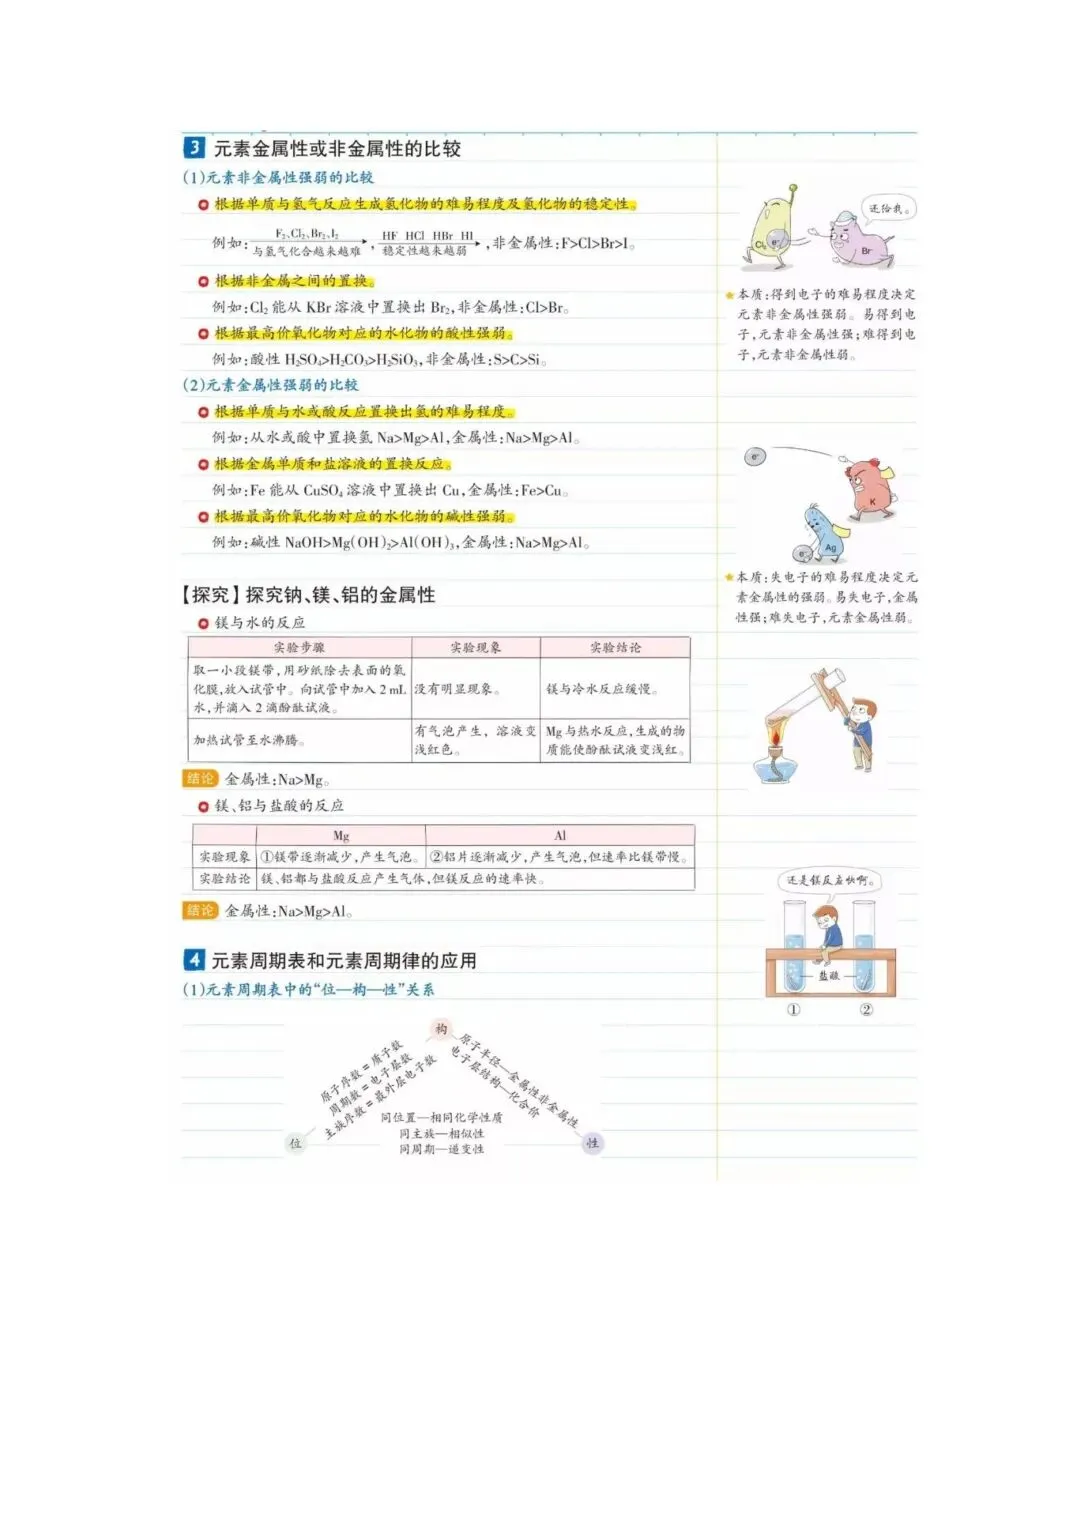 3 元素金属性或非金属性的比较
(1)元素非金属性强弱的比较
根据单质与氢气反应生成氢化物的难易程度及氢化物的稳定性。
例如:F₂、Cl₂、Br₂、I₂ 与氢气化合越来越难, HF HCl HBr HI 稳定性越来越弱,非金属性:F>Cl>Br>I。
根据非金属之间的置换。
例如:Cl₂能从KBr溶液中置换出Br₂,非金属性:Cl>Br。
根据最高价氧化物对应的水化物的酸性强弱。
例如:酸性H₂SO₄>H₂CO₃>H₂SiO₃,非金属性:S>C>Si。
(2)元素金属性强弱的比较
根据单质与水或酸反应置换出氢的难易程度。
例如:从水或酸中置换氢Na>Mg>Al,金属性:Na>Mg>Al。
根据金属单质和盐溶液的置换反应。
例如:Fe能从CuSO₄溶液中置换出Cu,金属性:Fe>Cu。
根据最高价氧化物对应的水化物的碱性强弱。
例如:碱性NaOH>Mg(OH)₂>Al(OH)₃,金属性:Na>Mg>Al。
还给我。
Cl e⁻ Br
本质:得到电子的难易程度决定
元素非金属性强弱。易得到电
子,元素非金属性强;难得到电
子,元素非金属性弱。
e⁻
K
e⁻ Ag
本质:失电子的难易程度决定元
素金属性的强弱。易失电子,金属
性强;难失电子,元素金属性弱。
【探究】探究钠、镁、铝的金属性
镁与水的反应
实验步骤 实验现象 实验结论
取一小段镁带,用砂纸除去表面的氧
化膜,放入试管中。向试管中加入2 mL
水,并滴入2滴酚酞试液。
没有明显现象。
镁与冷水反应缓慢。
加热试管至水沸腾。
有气泡产生,溶液变
浅红色。
Mg与热水反应,生成的物
质能使酚酞试液变浅红。
结论 金属性:Na>Mg。
镁、铝与盐酸的反应
Mg Al
实验现象 ①镁带逐渐减少,产生气泡。 ②铝片逐渐减少,产生气泡,但速率比镁带慢。
实验结论 镁、铝都与盐酸反应产生气体,但镁反应的速率快。
结论 金属性:Na>Mg>Al。
还是镁反应快啊。
盐酸
① ②
4 元素周期表和元素周期律的应用
(1)元素周期表中的“位—构—性”关系
构
原子序数=质子数
周期数=电子层数
主族序数=最外层电子数
原子半径—金属性非金属性
电子层结构—化合价
同位置—相同化学性质
同主族—相似性
同周期—递变性
位
性